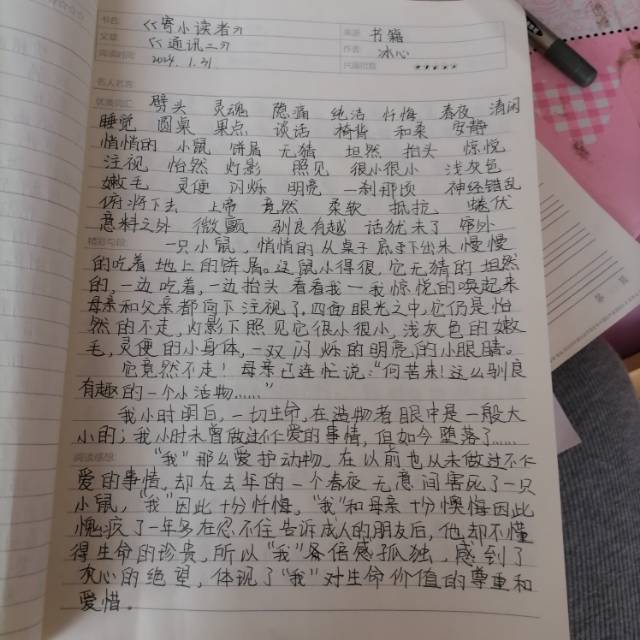 书名: 《寄小读者》 来源: 书籍
文章: 《通讯二》 作者: 冰心
阅读时间: 2024.1.21 ★★★★★
名人名言:
优美词汇: 劈头 灵魂 隐痛 纯洁 忏悔 春夜 清闲
睡觉 圆桌 果点 谈话 椅背 和柔 安静
悄悄的 小鼠 饼屑 无猜 坦然 抬头 惊悦
注视 怡然 灯影 照见 很小很小 浅灰色
嫩毛 灵便 闪烁 明亮 一刹那顷 神经错乱
俯将下去 上帝 竟然 柔软 抵抗 蜷伏
意料之外 微颤 驯良有趣 话犹未了 帘外
精彩句段: 一只小鼠,悄悄的从桌子底下出来慢慢
的吃着地上的饼屑。这鼠小得很,它无猜的坦然
的,一边吃着,一边抬头看看我一我惊悦的唤起来
母亲和父亲都向下注视了,四面眼光之中,它仍是怡
然的不走,灯影下照见它很小很小,浅灰色的嫩
毛,灵便的小身体,一双闪烁的明亮的小眼睛。
它竟然不走!母亲已连忙说:“何苦来!这么驯良
有趣的一个小活物……”
我小时明白,一切生命,在造物者眼中是一般大
小的;我小时未曾做过不仁爱的事情,但如今堕落了……
阅读感想: “我”那么爱护动物,在以前也从未做过不仁
爱的事情,却在去年的一个春夜无意间害死了一只
小鼠,“我”因此十分忏悔。“我”和母亲十分懊悔因此
愧疚了一年多在忍不住告诉成人的朋友后,他却不懂
得生命的珍贵,所以“我”备倍感孤独,感到了
灰心的绝望,体现了“我”对生命价值的尊重和
爱惜。